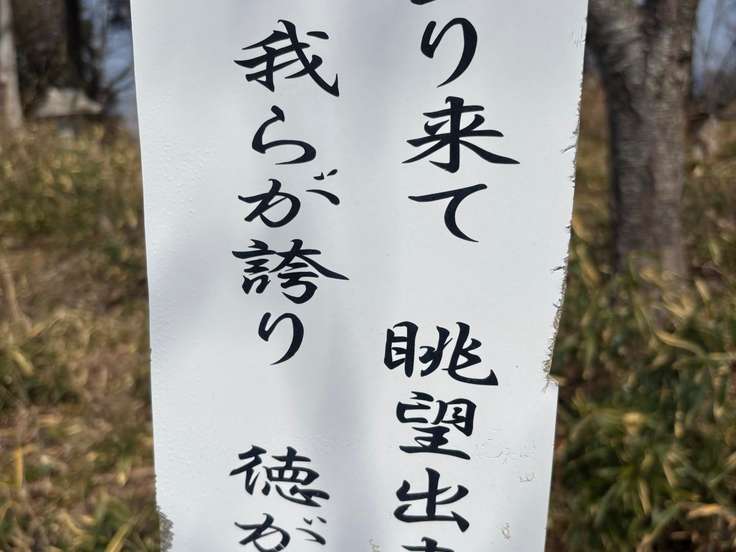 り来て 眺望出
我らが誇り 徳が